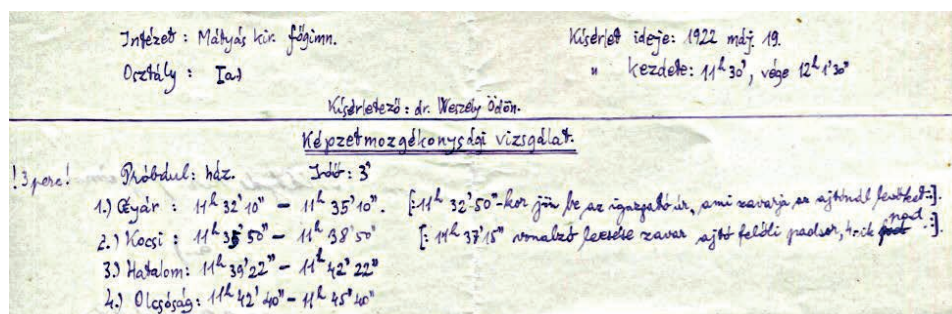 Intézet: Mátyás kir. főgimn. Kísérlet ideje: 1922 máj. 19.
Osztály: I.a) " kezdete: 11ʰ 30', vége 12ʰ 1'30"
Kísérletező: dr. Weszely Ödön.
Képzetmozgékonysági vizsgálat.
!3 perc! Próbául: ház. Idő: 3'
1.) Gyár: 11ʰ 32' 10" – 11ʰ 35' 10". [:11ʰ 32' 50"-kor jön be az igazgató úr, ami zavarja az ajtónál levőket:].
2.) Kocsi: 11ʰ 35' 50" – 11ʰ 38' 50" [: 11ʰ 37' 15" vonalzó leesése zavar ajtó felőli padsor, 4-ik pad :].
3.) Hatalom: 11ʰ 39' 22" – 11ʰ 42' 22"
4.) Olcsóság: 11ʰ 42' 40" – 11ʰ 45' 40"